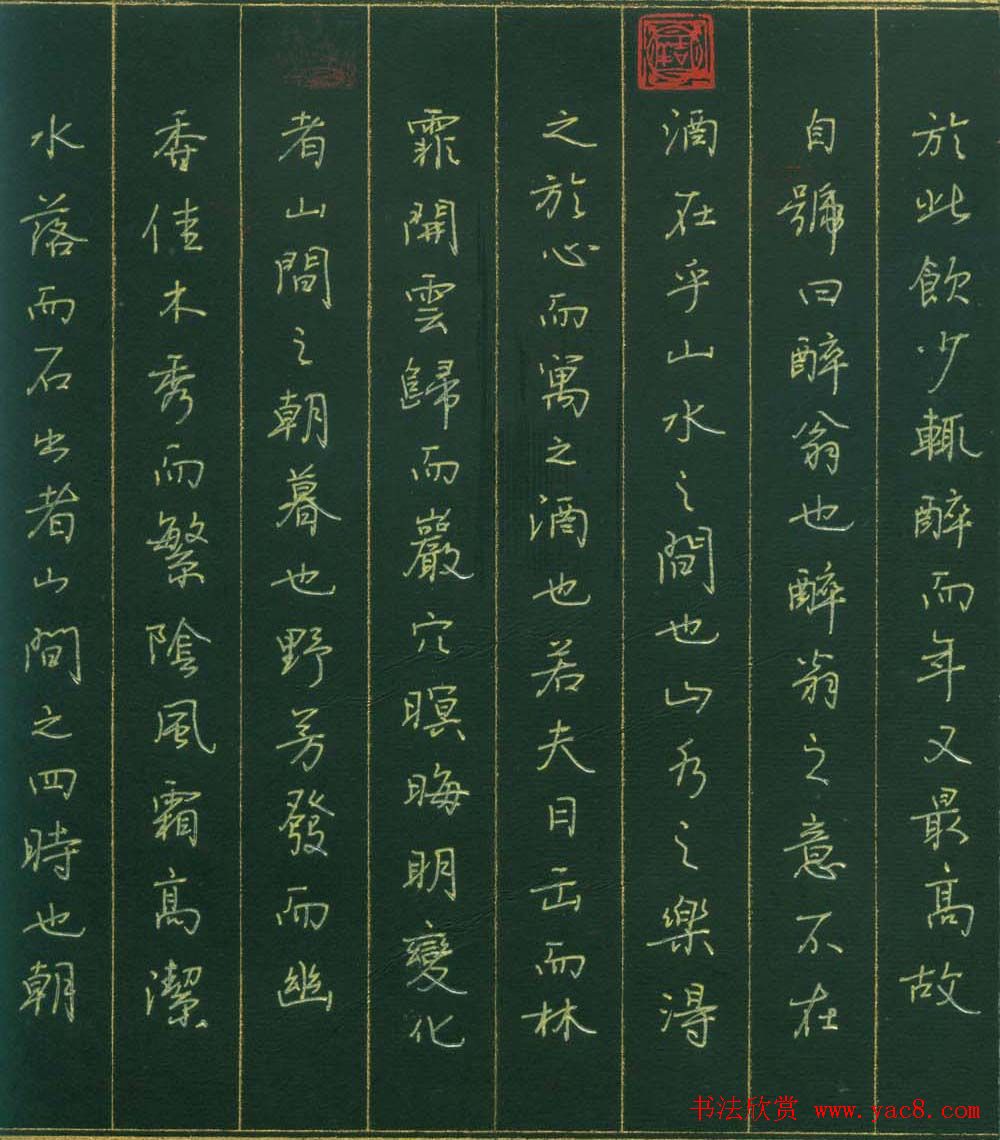 於此飲少輒醉而年又最高故
自號曰醉翁也醉翁之意不在
酒在乎山水之間也山水之樂得
之於心而寓之酒也若夫日出而林
霏開雲歸而巖穴暝晦明變化
者山間之朝暮也野芳發而幽
香佳木秀而繁陰風霜高潔
水落而石出者山間之四時也朝
书法欣赏 www.yac8.com